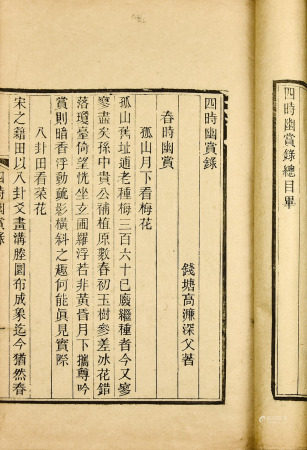 四時幽賞錄總目畢
四時幽賞錄
錢塘高濂深父著
春時幽賞
孤山月下看梅花
孤山舊址逋老種梅三百六十已廢繼種者今又寥
寥盡矣孫中貴公補植原數春初玉樹參差冰花錯
落瓊臺倚望恍坐玄圃羅浮若非黃昏月下攜尊吟
賞則暗香浮動疏影橫斜之趣何能真見實際
八卦田看菜花
宋之籍田以八卦爻畫溝塍圜布成象迄今猶然春
四時幽賞錄